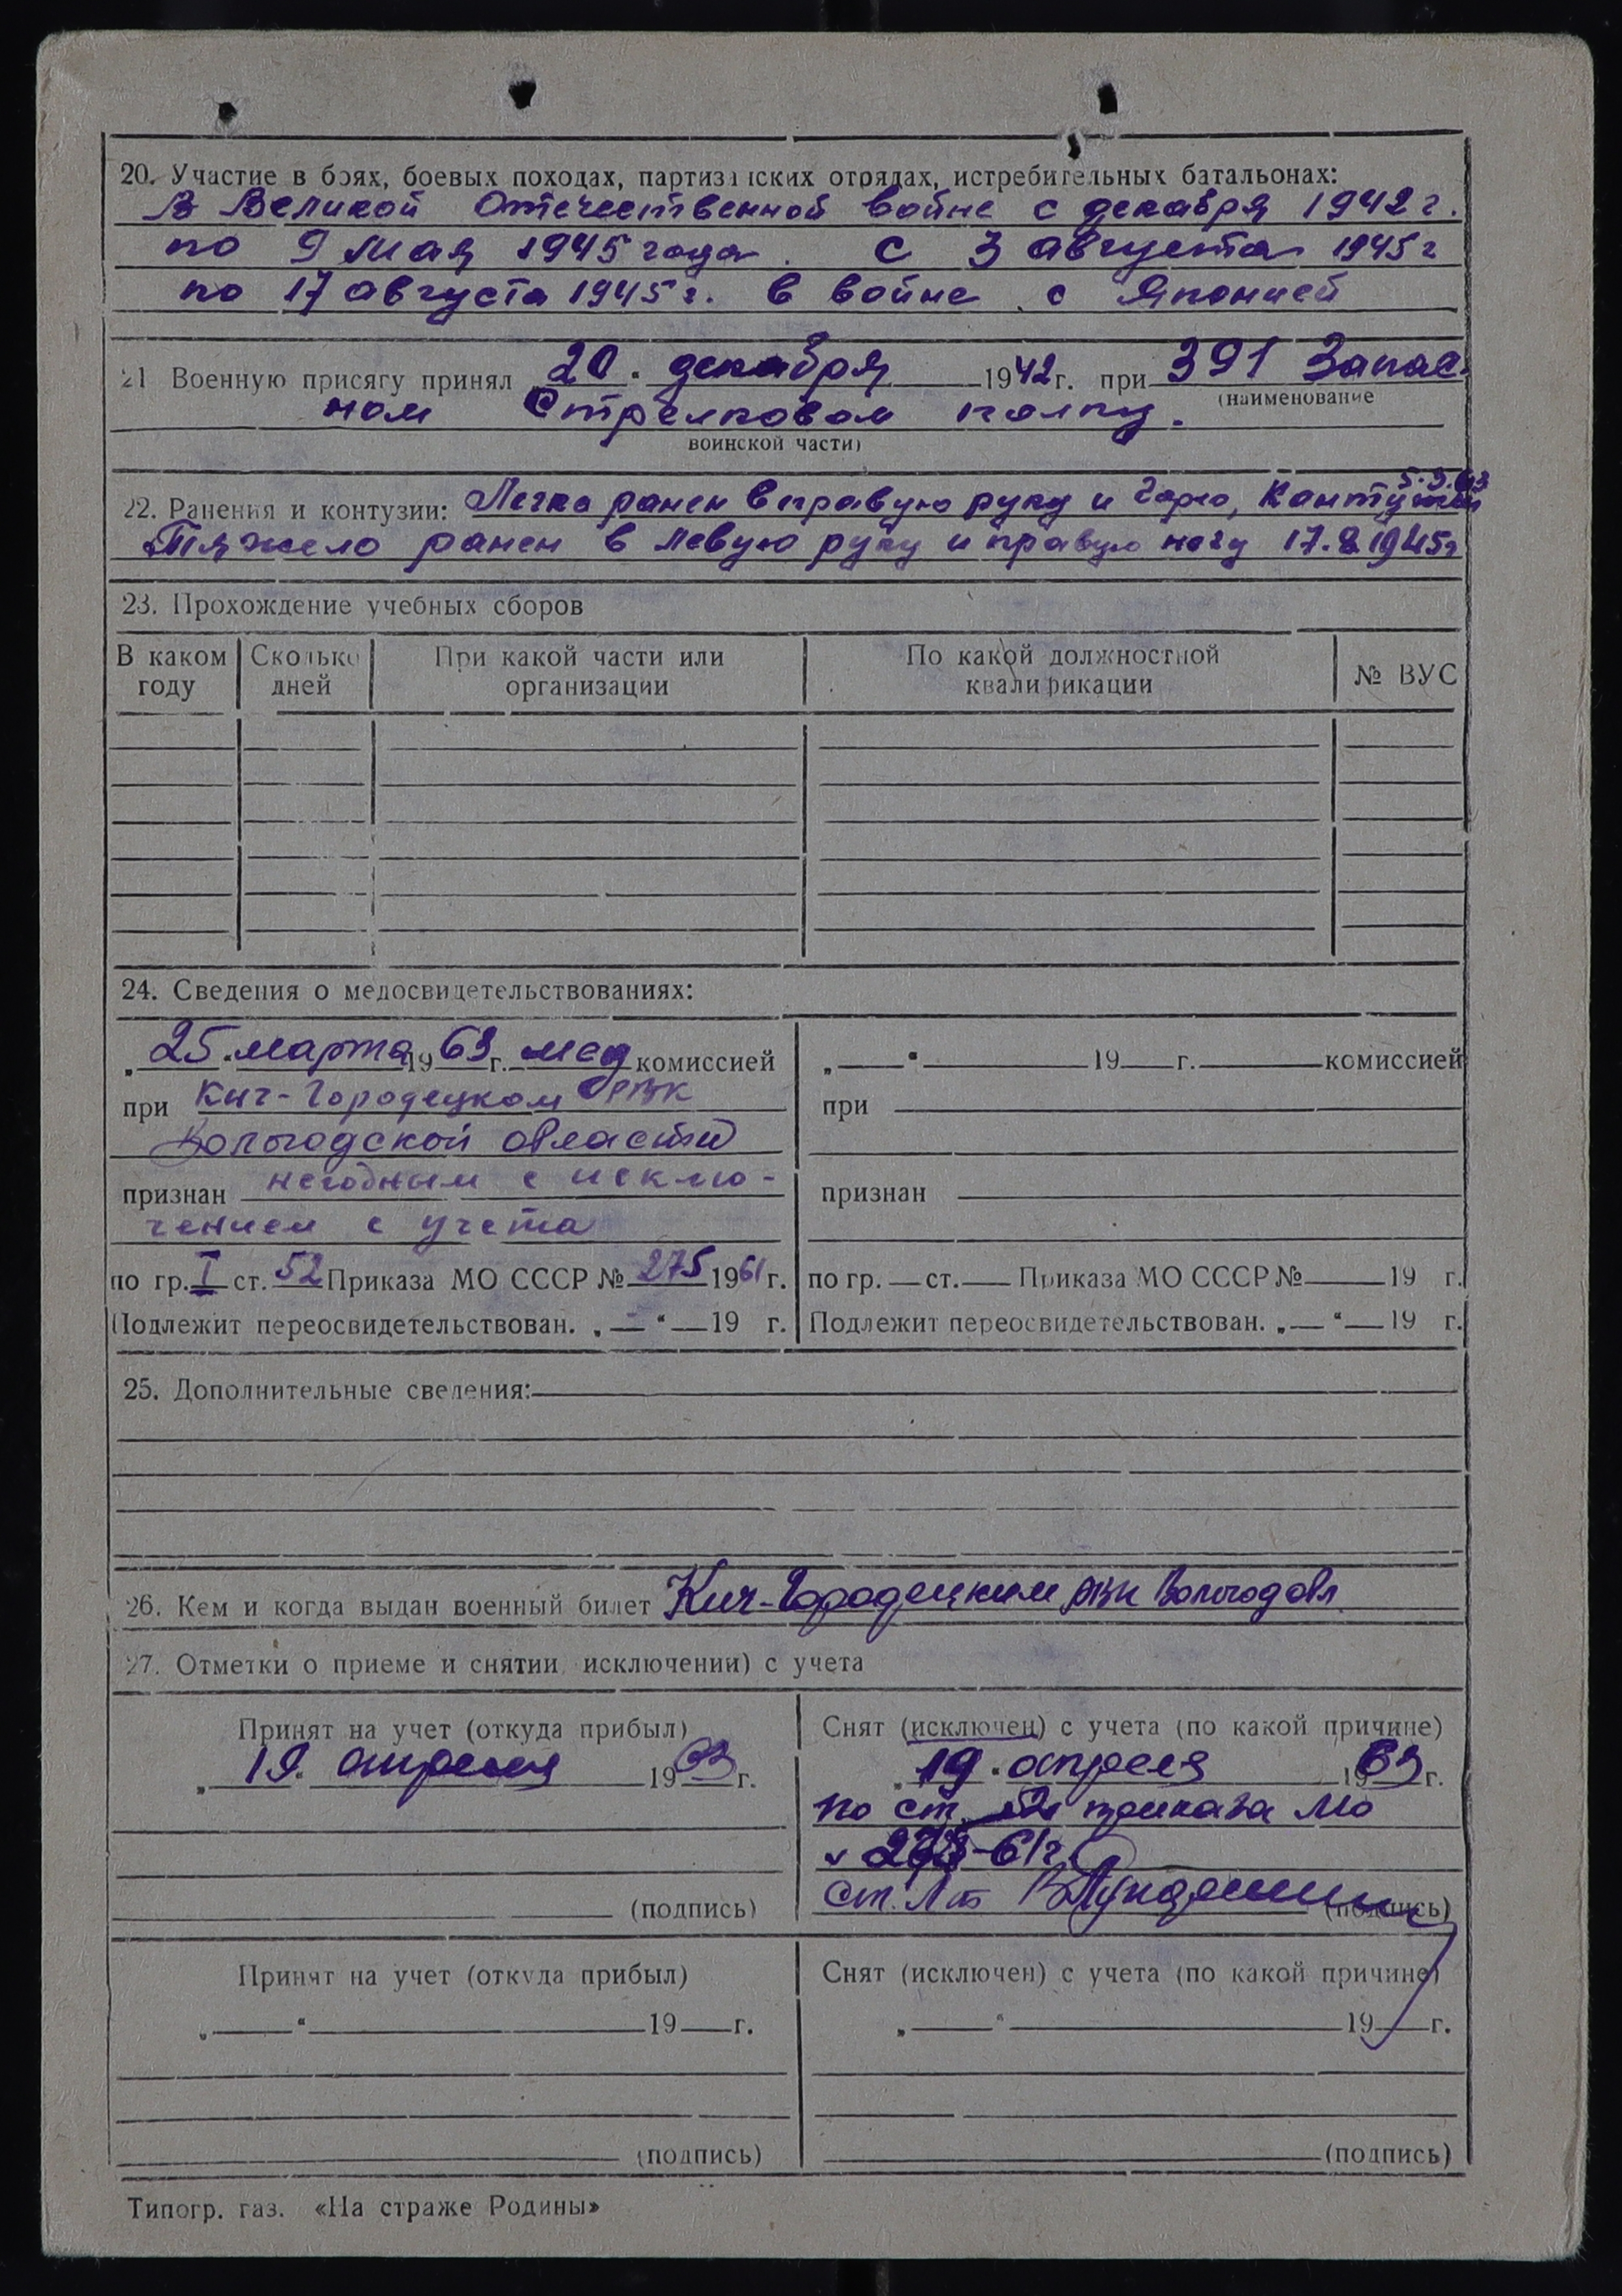 20. Участие в боях, боевых походах, партизанских отрядах, истребительных батальонах:
В Великой Отечественной войне с декабря 1942 г.
по 9 мая 1945 года. С 3 августа 1945 г
по 17 августа 1945 г. в войне с Японией
21 Военную присягу принял 20. декабря 1942 г. при 391 Запас
(наименование
ном Стрелковом полку.
воинской части)
5.9.43
22. Ранения и контузии: Легко ранен в правую руку и
Тяжело ранен в левую руку и правую ногу 17.8.1945 г
23. Прохождение учебных сборов
В каком году Сколько дней При какой части или организации По какой должностной квалификации № ВУС
24. Сведения о медосвидетельствованиях:
25. марта 1963 г. мед комиссией
при Кич-Городецком РВК
Вологодской области
признан негодным с исклю-
чением с учета
по гр. I ст. 52 Приказа МО СССР № 275 1961 г.
Подлежит переосвидетельствован. „ “ 19 г.
„ “ 19 г. комиссией
при
признан
по гр. ст. Приказа МО СССР № 19 г.
Подлежит переосвидетельствован. „ “ 19 г.
25. Дополнительные сведения:
26. Кем и когда выдан военный билет Кич-Городецким РВК Вологод обл
27. Отметки о приеме и снятии исключении) с учета
Принят на учет (откуда прибыл)
„ 19. апреля 1963 г.
(подпись)
Снят (исключен) с учета (по какой причине)
„ 19. апреля 1963 г.
по ст. 52 приказа МО
275-61 г.
Ст. Л-т
(подпись)
Принят на учет (откуда прибыл)
„ “ 19 г.
(подпись)
Снят (исключен) с учета (по какой причине)
„ “ 19 г.
(подпись)
Типогр. газ. «На страже Родины»